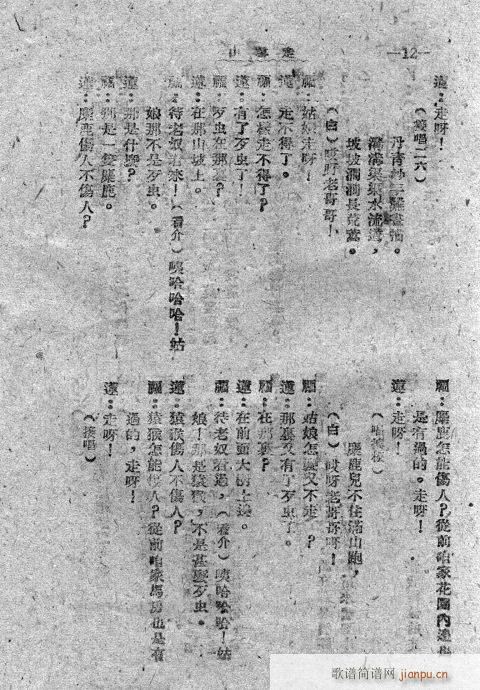 走雪山
—12—
蓮：走呀！
（接唱二六）
溝溝渠渠水流遠，
坡坡澗澗長
（白）哎呀老哥哥！
福：姑娘走呀！
蓮：走不得了。
福：怎樣走不得了？
蓮：有了歹虫了！
福：歹虫在那裏？
蓮：在那山坡上。
福：待老奴看來！（看介）咦哈哈哈！姑
娘那不是歹虫。
蓮：那是什麼？
福：那是一隻麋鹿。
蓮：麋鹿傷人不傷人？
福：麋鹿怎能傷人？從前咱家花園內
是有過的。走呀！
蓮：走呀！
麋鹿兒不住滿山跑，
（白）哎呀老哥哥呀！
福：姑娘怎麼又不走？
蓮：那裏又有了歹虫了。
福：在那裏？
蓮：在前面大樹上邊。
福：待老奴看過，（看介）咦哈哈哈！姑
娘！那是猿猴，不是甚麼歹虫。
蓮：猿猴傷人不傷人？
福：猿猴怎能傷人？從前咱家馬房也是有
過的，走呀！
蓮：走呀！
（接唱）
歌谱简谱网 jianpu.cn